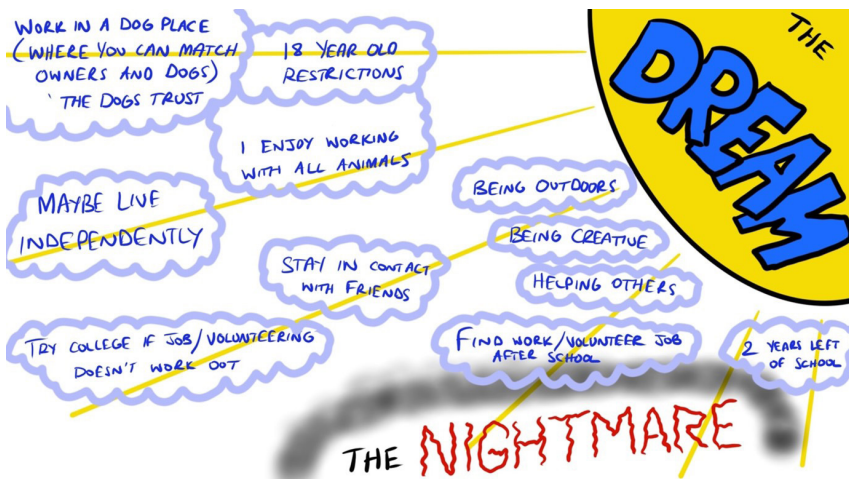 WORK IN A DOG PLACE
(WHERE YOU CAN MATCH
OWNERS AND DOGS)
' THE DOGS TRUST
18 YEAR OLD
RESTRICTIONS
THE
DREAM
I ENJOY WORKING
WITH ALL ANIMALS
MAYBE LIVE
INDEPENDENTLY
BEING OUTDOORS
BEING CREATIVE
HELPING OTHERS
STAY IN CONTACT
WITH FRIENDS
TRY COLLEGE IF JOB/VOLUNTEERING
DOESN'T WORK OUT
FIND WORK/VOLUNTEER JOB
AFTER SCHOOL
2 YEARS LEFT
OF SCHOOL
THE NIGHTMARE